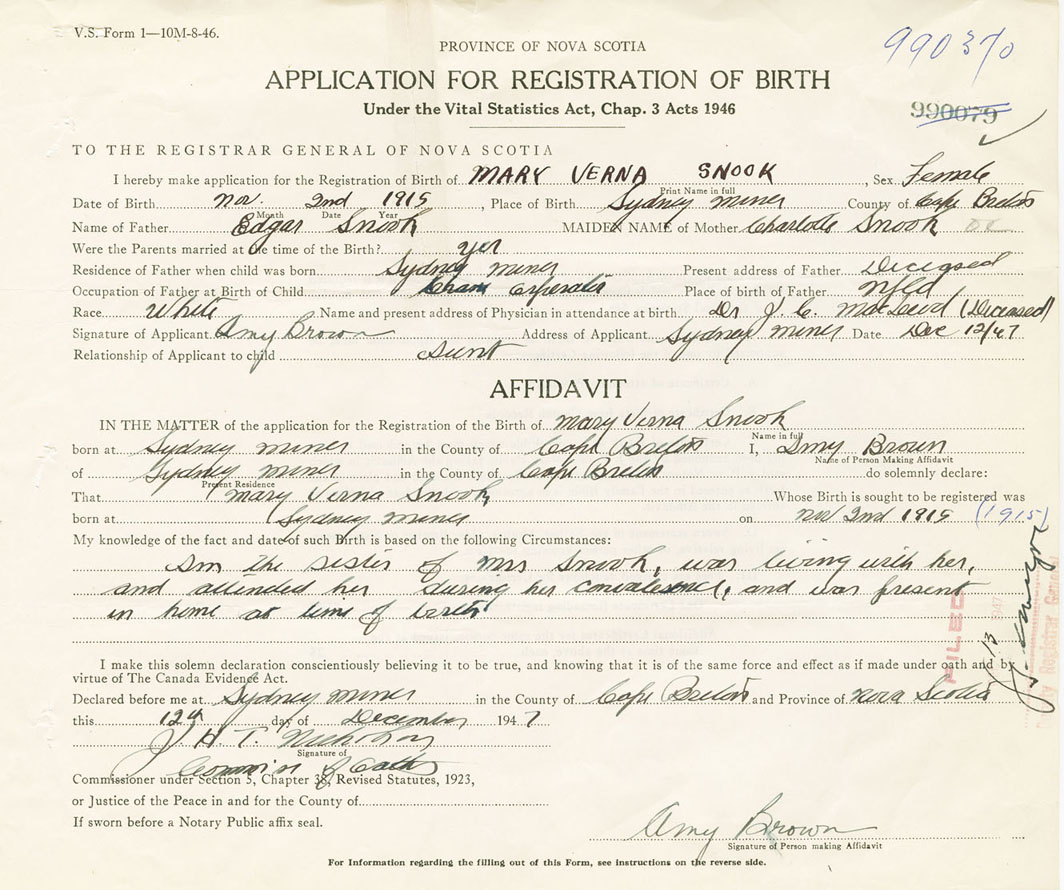 V.S. Form 1—10M-8-46.
990370
PROVINCE OF NOVA SCOTIA
APPLICATION FOR REGISTRATION OF BIRTH
Under the Vital Statistics Act, Chap. 3 Acts 1946
990079
TO THE REGISTRAR GENERAL OF NOVA SCOTIA
I hereby make application for the Registration of Birth of MARY VERNA SNOOK, Sex Female
Print Name in full
Date of Birth Nov. 2nd 1915, Place of Birth Sydney Mines County of Cape Breton
Month Date Year
Name of Father Edgar Snook MAIDEN NAME of Mother Charlotte Snook
Were the Parents married at the time of the Birth? yes
Residence of Father when child was born Sydney Mines Present address of Father Deceased
Occupation of Father at Birth of Child Place of birth of Father Nfld
Race White Name and present address of Physician in attendance at birth Dr J. C. MacLeod (Deceased)
Signature of Applicant Amy Brown Address of Applicant Sydney Mines Date Dec 12/47
Relationship of Applicant to child Aunt
AFFIDAVIT
IN THE MATTER of the application for the Registration of Birth of Mary Verna Snook
Name in full
born at Sydney Mines in the County of Cape Breton I, Amy Brown
Name of Person Making Affidavit
of Sydney Mines in the County of Cape Breton do solemnly declare:
Present Residence
That Mary Verna Snook Whose Birth is sought to be registered was
born at Sydney Mines on Nov 2nd 1915 (1915)
My knowledge of the fact and date of such Birth is based on the following Circumstances:
Am the sister of Mrs Snook, was living with her,
and attended her during her convalescence, and was present
in home at time of birth
FILED
13 1947
I make this solemn declaration conscientiously believing it to be true, and knowing that it is of the same force and effect as if made under oath and by
virtue of The Canada Evidence Act.
Declared before me at Sydney Mines in the County of Cape Breton and Province of Nova Scotia
this 12th day of December 1947
J. H. T.
Signature of
Commissioner under Section 5, Chapter 38, Revised Statutes, 1923,
or Justice of the Peace in and for the County of
If sworn before a Notary Public affix seal.
Amy Brown
Signature of Person making Affidavit
For Information regarding the filling out of this Form, see instructions on the reverse side.